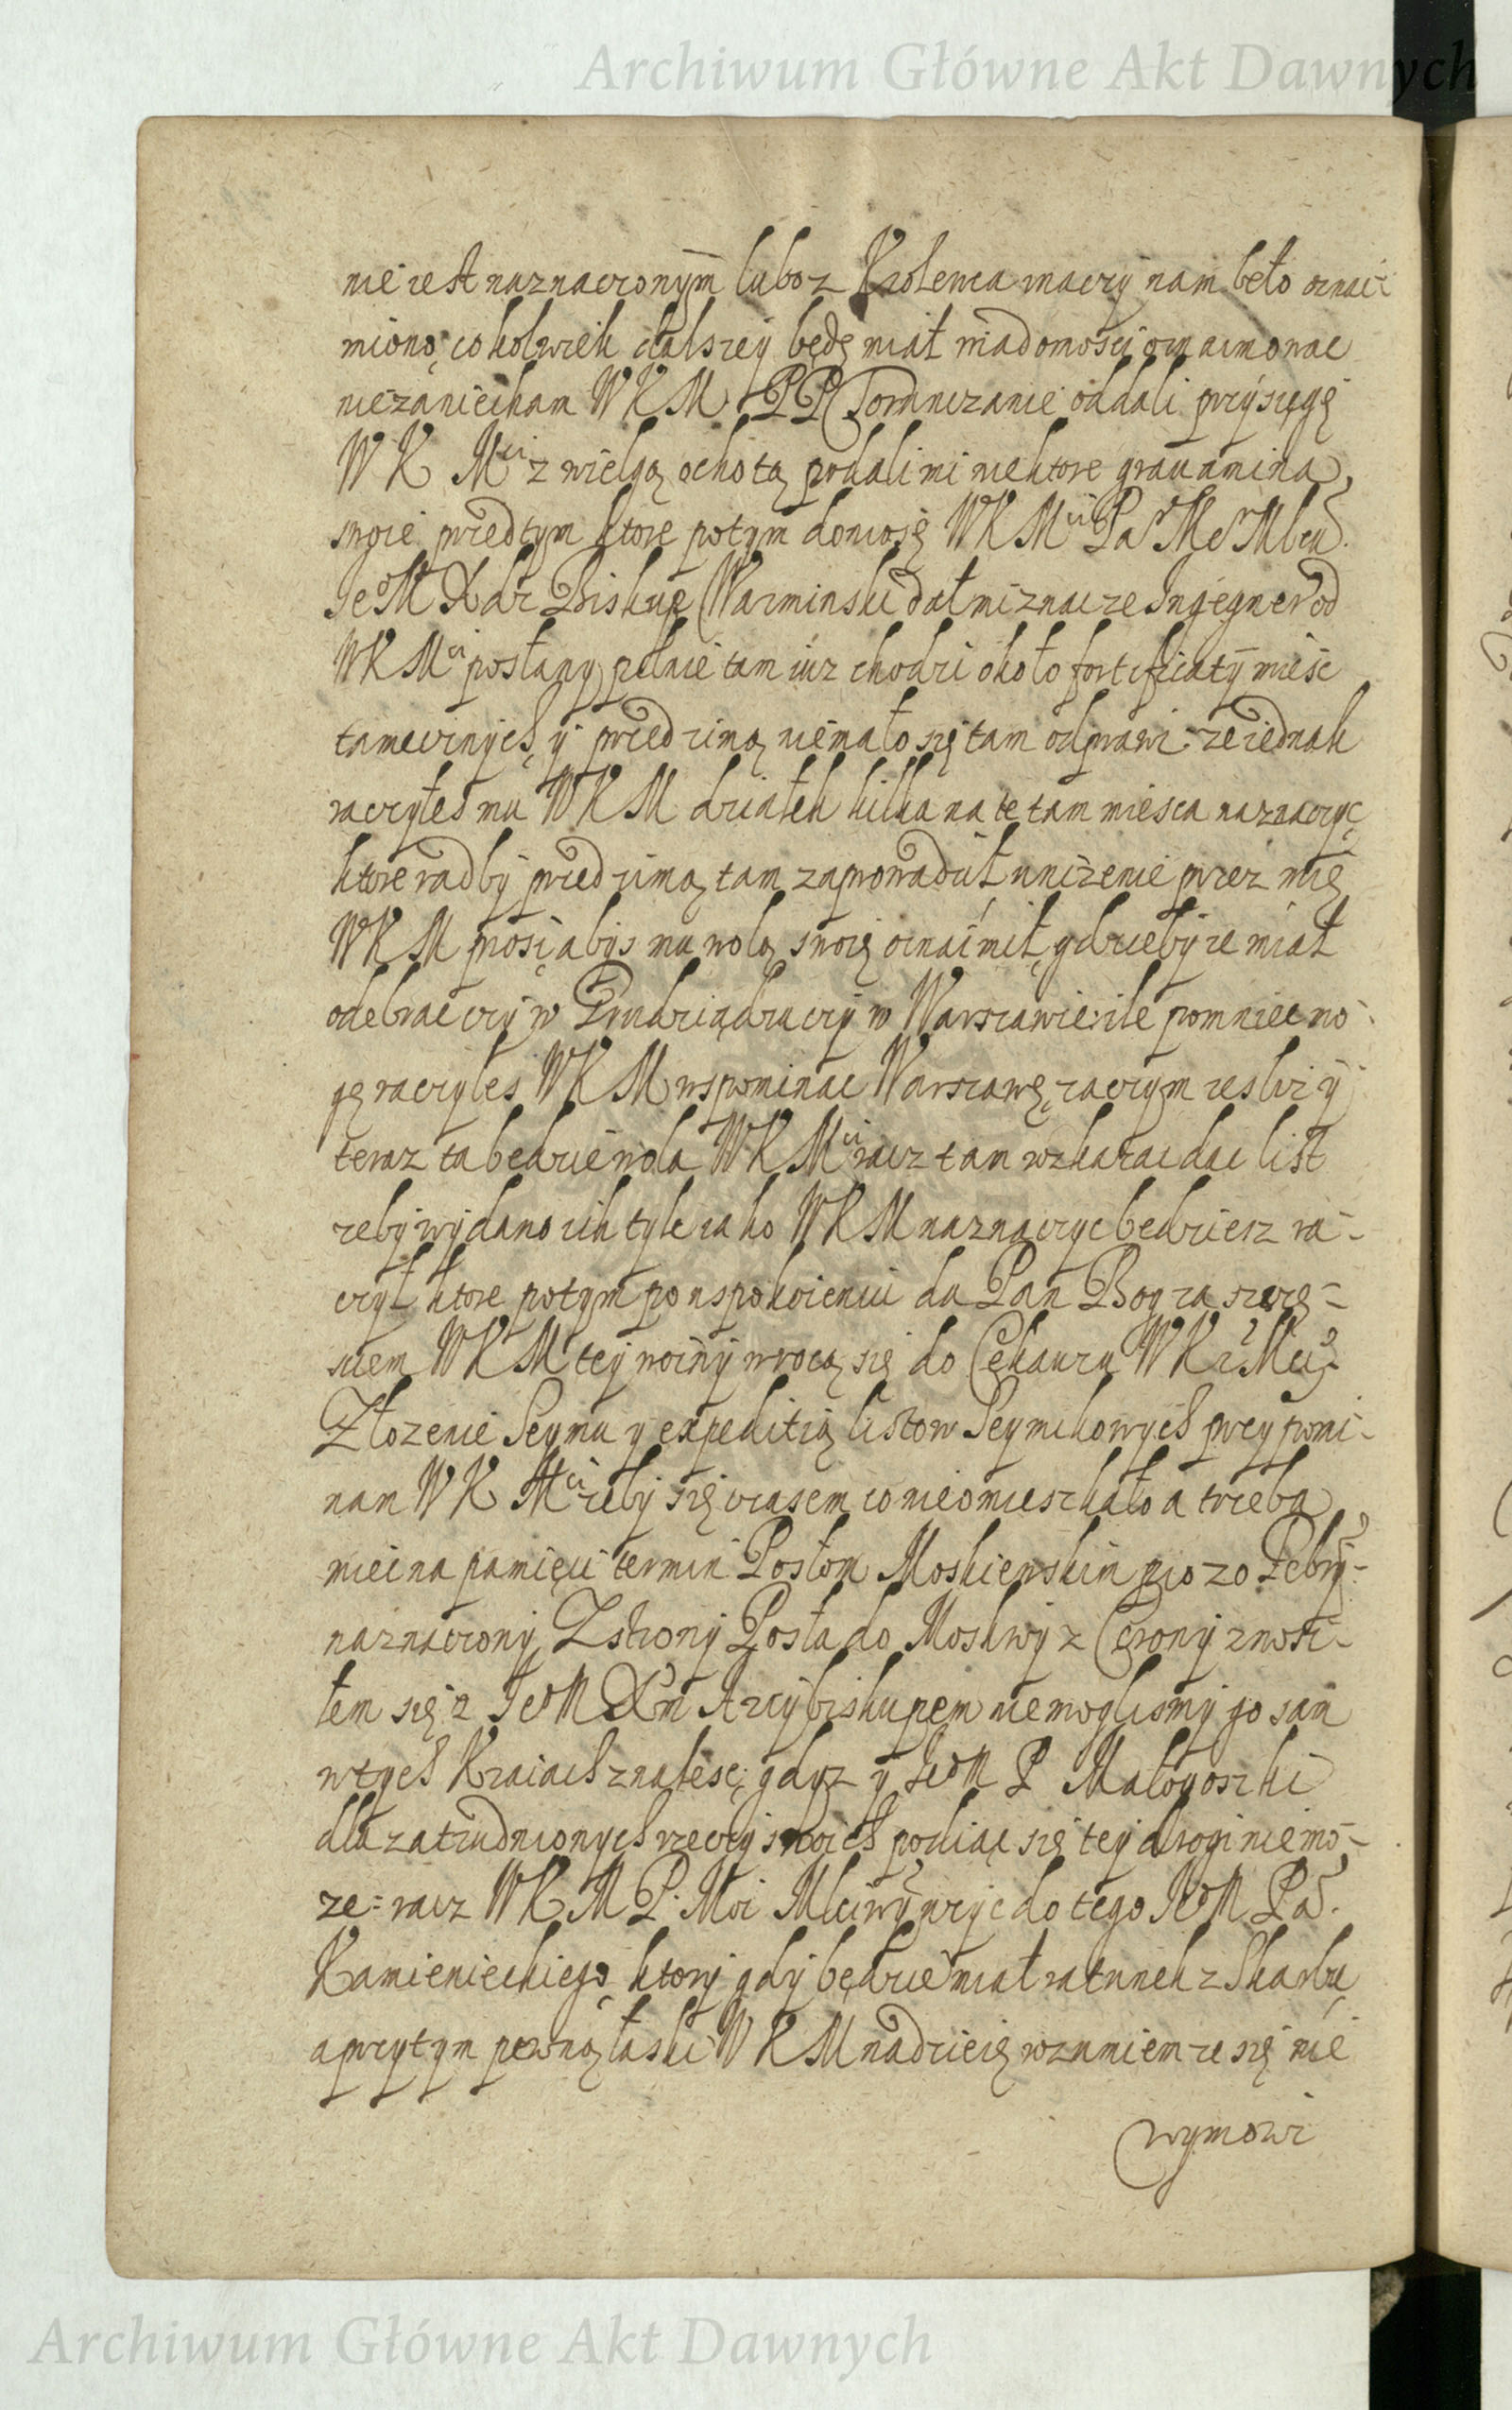 Archiwum Główne Akt Dawnych
nie iest naznaczonym lubo z Krolewca inaczy nam beło oznai-
miono, cokolwiek dalszey będę miał wiadomosci oznaimowac
niezaniecham WKM PP Torunczanie oddali przysięgę
WK Mci z wielgą ochotą podali mi niektore grauamina
swoie przedtym ktore potym doniosę WKMci Pa Me Mciu.
Je° M Xdz Biskup Warminski dał mi znac ze Ingegner od
WKMci posłany pelnie tam iuz chodzi około fortificatÿ miesc
tamecznych, y przed zimą niemało się tam odprawi, ze iednak
raczyłes mu WKM działek kilka na te tam miesca naznaczyc,
ktore radby przed zimą tam zaprowadził unizenie przez mię
WKM prosi, abys mu wolą swoię oznaimił, gdzieby ie miał
odebrac czy w Grudziądzu czy w Warszawie: ile pomniec mo-
gę raczyles WKM wspominac Warszawę, zaczym iesliz y
teraz ta bedzie wola WKMci racz tam wzkazac dac list
zeby wydano ich tyle iako WKM naznaczyc bedziesz ra-
czył ktore potym po uspokoieniu da Pan Bog za szczę-
sciem WKM tey woiny wrocą się do Cekauzu WKr Mci.
Złozenie Seymu y expeditią listow Seymikowych przypomi-
nam WK Mci zeby się czasem co nieomieszkało a trzeba
miec na pamięci termin Posłom Moskiewskim pro 20 Febry
naznaczony, Z strony Posła do Moskwy z Corony znosi-
łem się z Je°M Xm Arcybiskupem niemoglismy go sam
w tych Kraiach znalesc, gdyz y Je°M P Małogoszki
dla zatrudnionych rzeczy swoich podiąc się tey drogi niemo-
ze: racz WKM P. Moi Mciwy uzyc do tego Je°M Pa.
Kamienieckiego, ktory gdy będzie miał ratunek z Skarbu,
a przytym pewną łaski WKM nadzieię rozumiem ze się nie
wymowi
Archiwum Główne Akt Dawnych